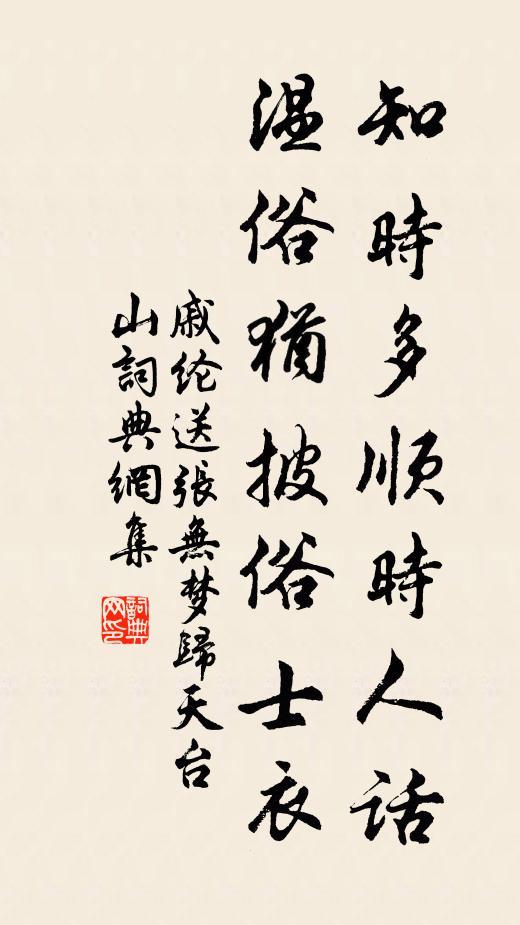 知時多順時人話
溫俗猶披俗士衣
戚纶送張無梦歸天台
山詞典網集
詞典
网印